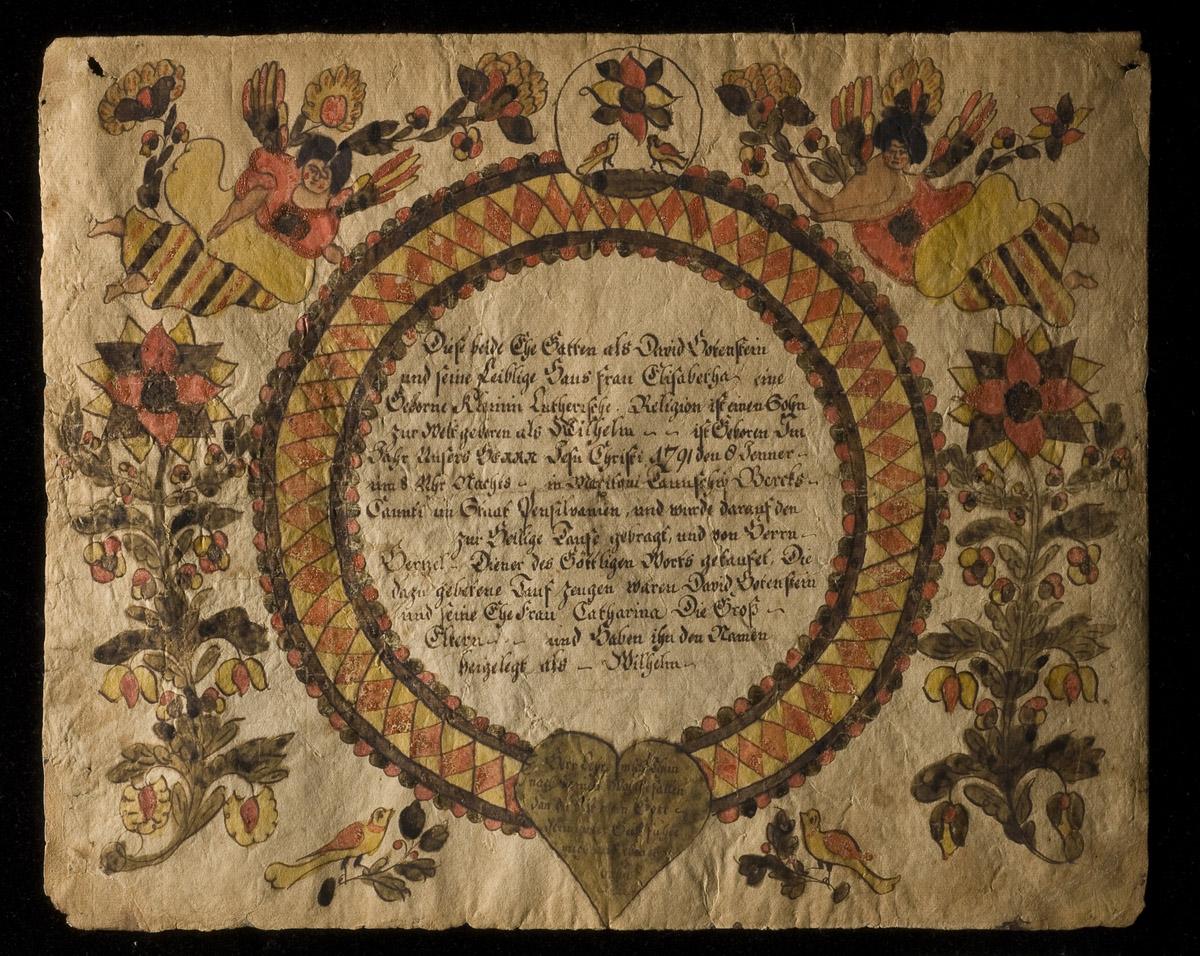 Diese beide Ehe Gatten als David Botenstein
und seine Leiblige Haus frau Elisabetha eine
Geborne Kleinin Lutherische. Religion ist einen Sohn
zur Welt geboren als Wilhelm - - ist Geboren Im
Jahr Unsers HERRN Jesu Christi 1791 den 8 Jenner -
um 8 Uhr Nachts - in Maxitani Taunschip Bercks -
Caunti im Staat Pensilvanien, und wurde darauf den
zur Heilige Taufe gebragt, und von Herrn
Hertzel - Diener des Göttligen Worts getaufet. Die
dazu gebetene Tauf zeugen waren David Botenstein
und seine Ehe Frau Catharina Die Groß -
Eltern - - und Haben ihn den Namen
beigelegt als - Wilhelm -
Herr mich
nach deinem Wohlgefallen
Gott